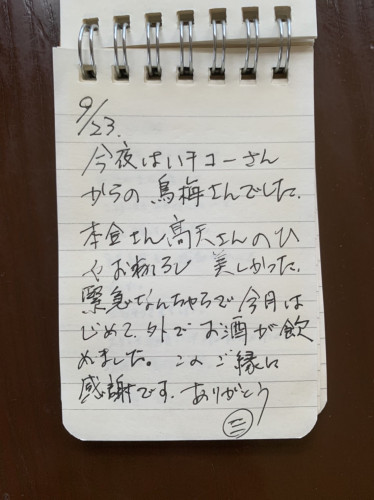 9/23.
今夜はいチコーさん
からの鳥梅さんでした.
本金さん高天さんのひ
やおねろし 美しかった.
緊急なんちゃらで今月は
じめて、外でお酒が飲
めました。このご縁に
感謝です. ありがとう